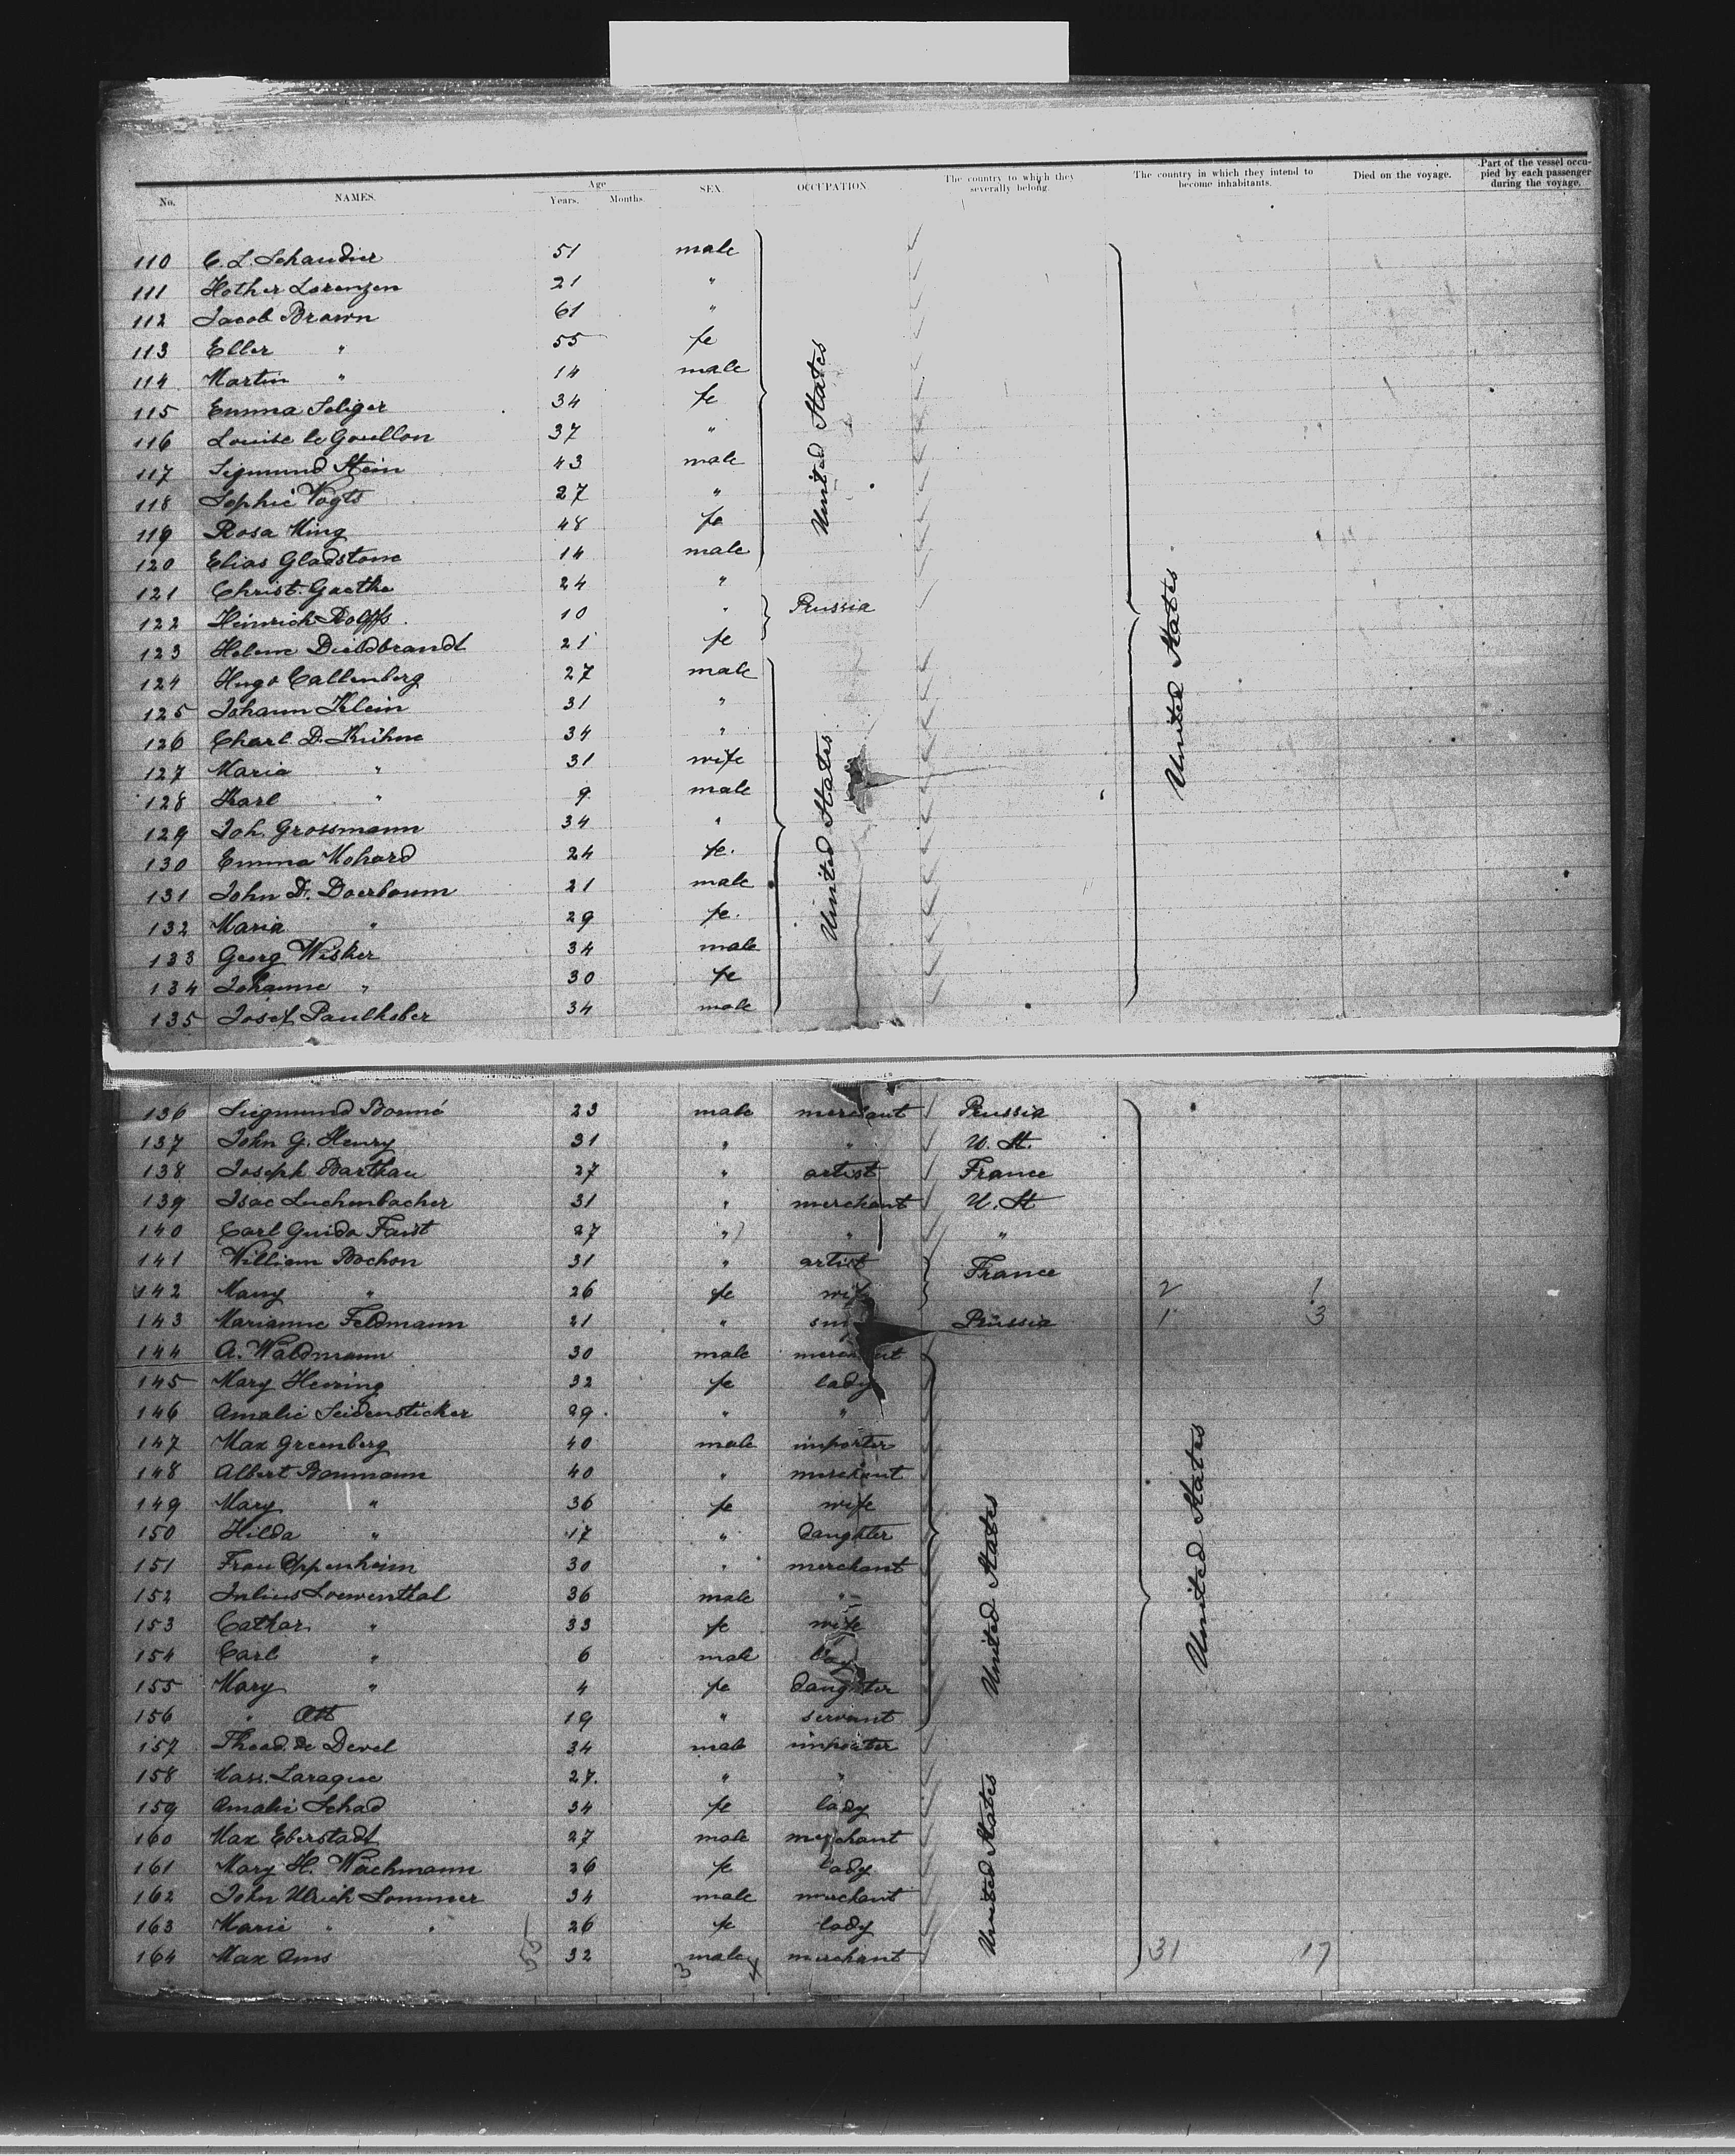 No. NAMES. Age Years. Months. SEX. OCCUPATION. The country to which they severally belong. The country in which they intend to become inhabitants. Died on the voyage. Part of the vessel occupied by each passenger during the voyage.
110 C. L. Schaudier 51 male
111 Hother Lorenzen 21 "
112 Jacob Brown 61 "
113 Eller " 55 fe
114 Martin " 14 male
115 Emma Seliger 34 fe
116 Louise le Goullon 37 "
117 Sigmund Stein 43 male
118 Sophie Vogts 27 "
119 Rosa King 48 fe
120 Elias Gladstone 14 male
United States
121 Christ. Goethe 24 "
122 Heinrich Roffs 10 " Prussia
123 Helene Dieldbrandt 21 fe
124 Hugo Callenberg 27 male
125 Johann Klein 31 "
126 Charl. D. Kühne 34 "
127 Maria " 31 wife
128 Karl " 9 male
129 Joh. Grossmann 34 "
130 Emma Mohard 24 fe.
131 John D. Doerboum 21 male
132 Maria " 29 fe.
133 Georg Wisker 34 male
134 Johanne " 30 fe
135 Josef Paulhaber 34 male
United States
United States
136 Siegmund Bonné 23 male merchant Prussia
137 John G. Henry 31 " " U. St.
138 Joseph Barthau 27 " artist France
139 Isac Luchenbacher 31 " merchant U. St
140 Carl Guido Faust 27 " " "
141 William Bochon 31 " artist France
142 Mary " 26 fe wife 2 1
143 Marianne Feldmann 21 " Prussia 1 3
144 A. Waldmann 30 male merchant
145 Mary Herring 32 fe lady
146 Amalie Seidensticker 29 " "
147 Max Greenberg 40 male importer
148 Albert Baumann 40 " merchant
149 Mary " 36 fe wife
150 Hilda " 17 " daughter
151 Frau Oppenheim 30 " merchant
152 Julius Loewenthal 36 male "
153 Cathar. " 33 fe wife
154 Carl " 6 male boy
155 Mary " 4 fe daughter
156 " Ott 19 " servant
United States
157 Theod. de Devel 34 male importer
158 Mass. Laragne 27. " "
159 Amalie Schad 34 fe lady
160 Max Eberstadt 27 male merchant
161 Mary H. Wachmann 26 fe lady
162 John Ulrich Sommer 34 male merchant
163 Marie " " 26 fe lady
164 Max Ams 32 male merchant 31 17
United States
United States
55 3 4